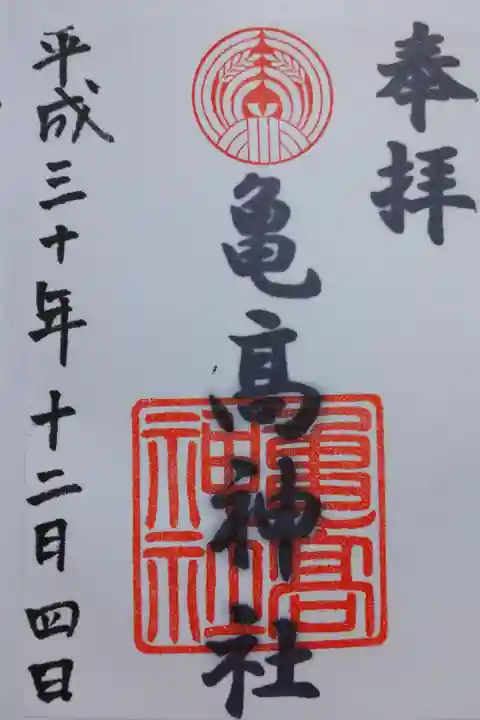 奉拝
亀高神社
亀高神社
平成三十年十二月四日